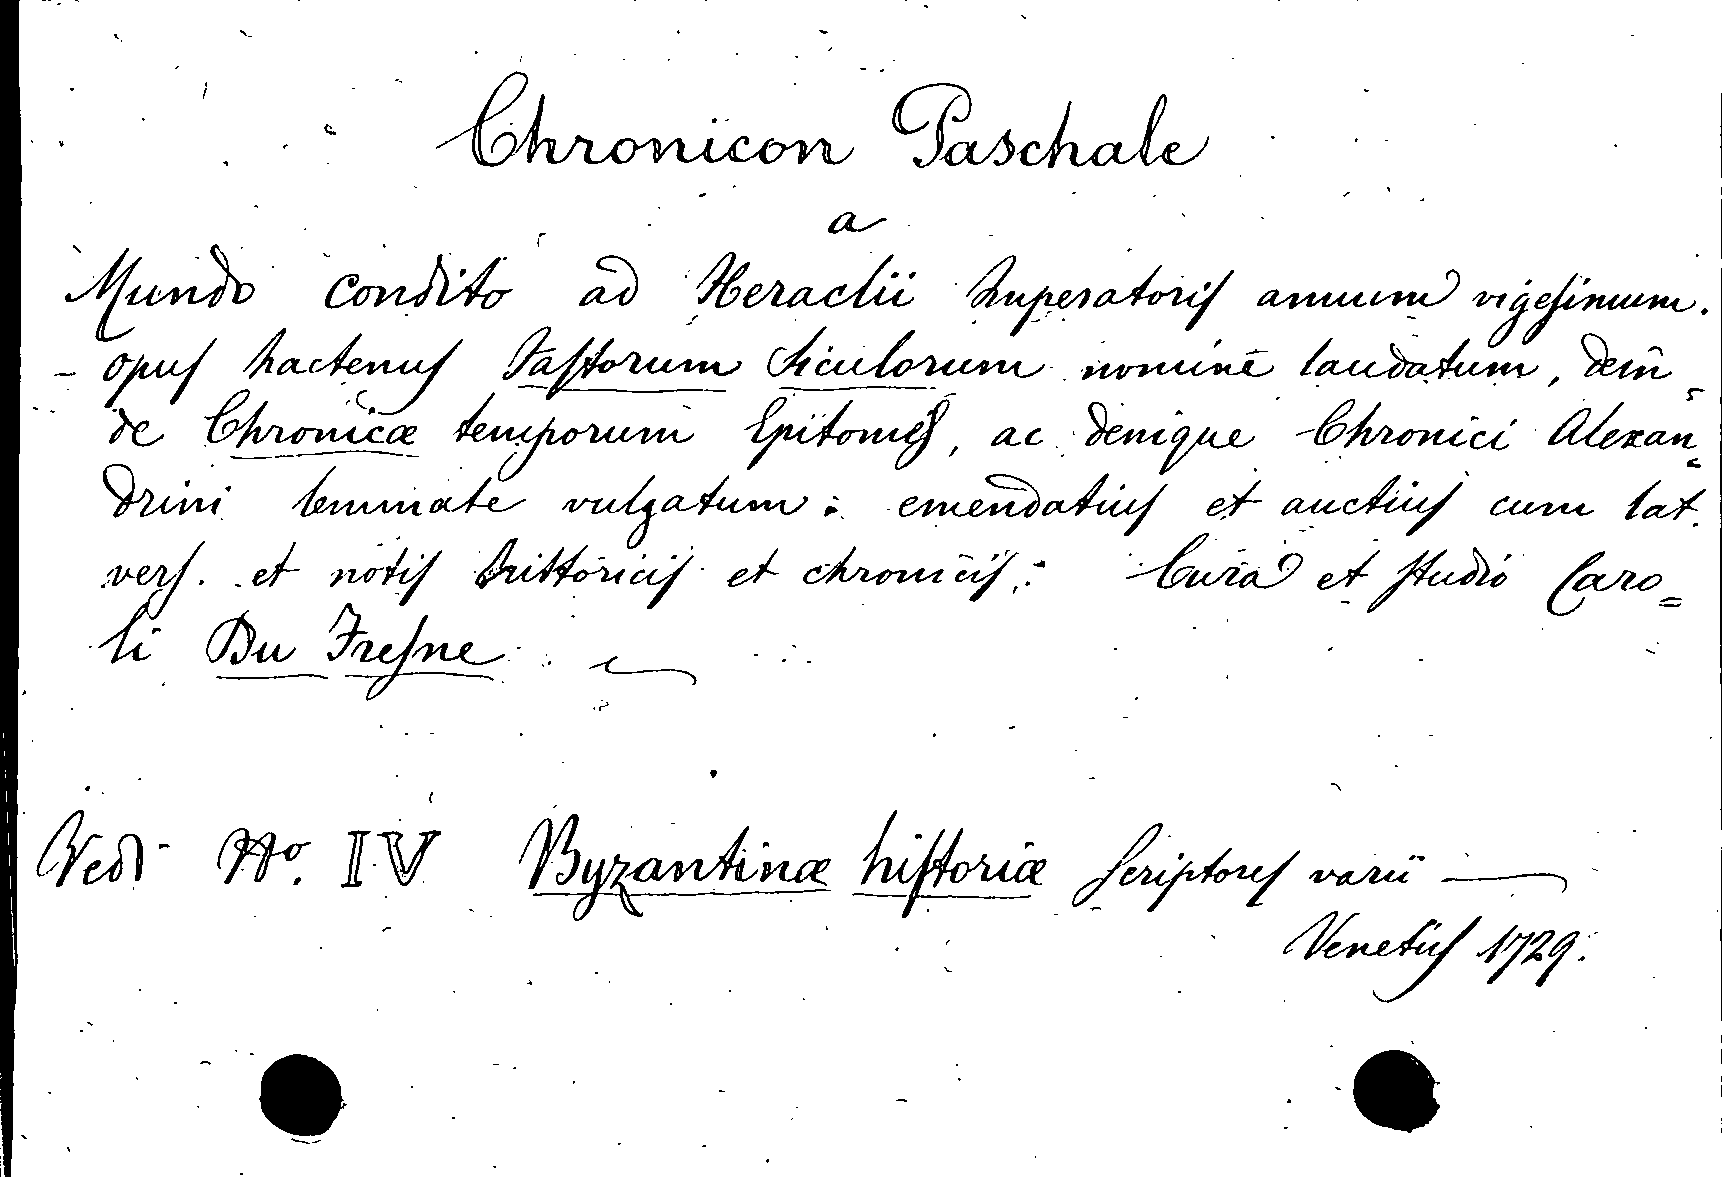 Chronicon Paschale
a
Mundo condito ad Heraclii Imperatoris annum vigesimum.
opus hactenus Fastorum Siculorum nomine laudatum, dein-
de Chronicæ temporum Epitomes, ac denique Chronici Alexan=
drini lemmate vulgatum: emendatius et auctius cum lat.
vers. et notis historicis et chronicis: Cura et studio Caro=
li Du Fresne
Vedi No. IV Byzantinæ historiæ scriptores varii —
Venetiis 1729.